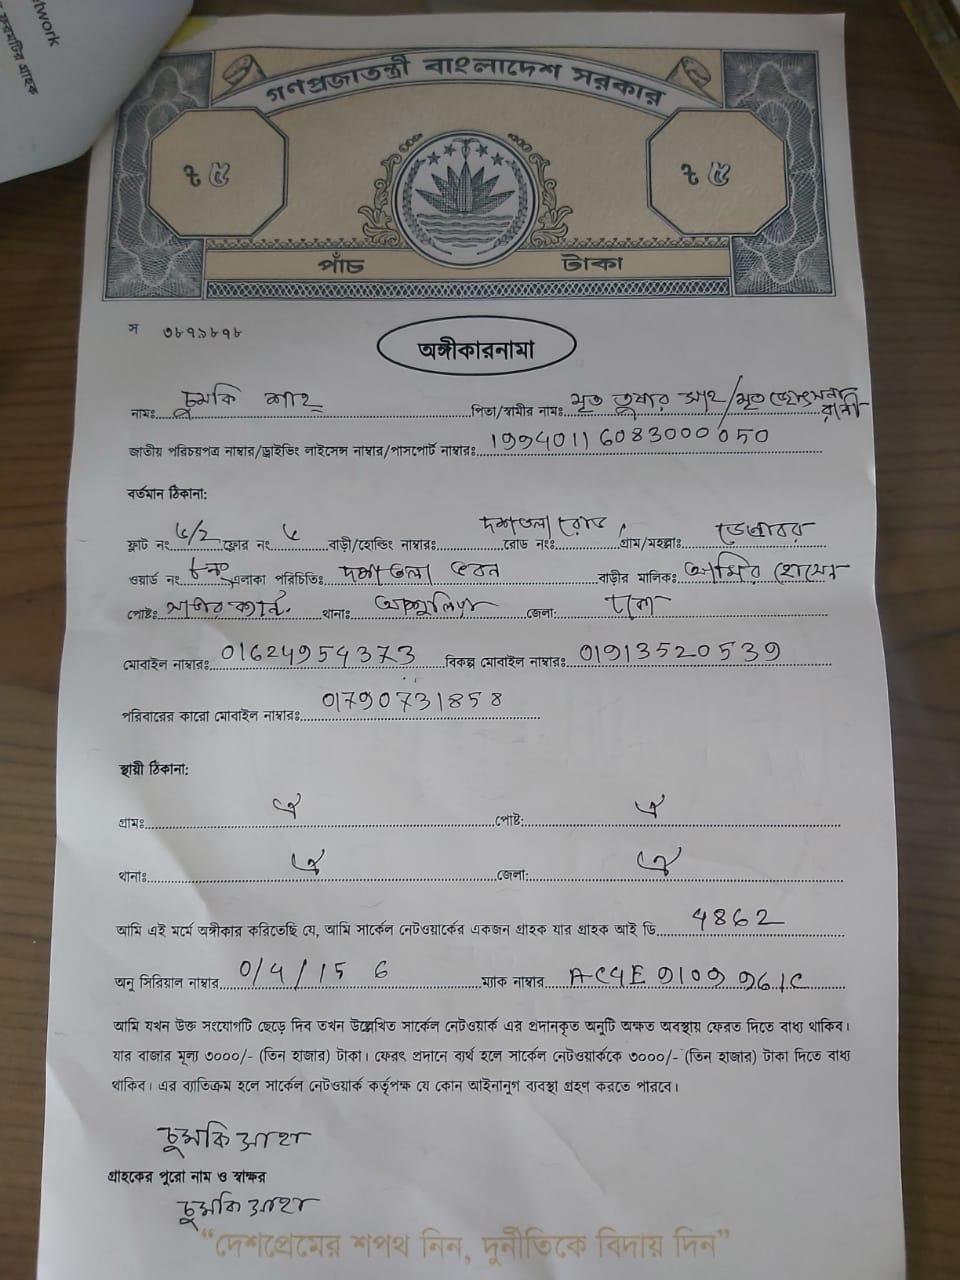 twork
ফরমটির গ্রাহক
গণপ্রজাতন্ত্রী বাংলাদেশ সরকার
৳ ৫ ৳ ৫
পাঁচ টাকা
স ৩৮৭৯৮৭৮
অঙ্গীকারনামা
নামঃ চুমকি শাহ পিতা/স্বামীর নামঃ মৃত তুষার সাহ/মৃত জোৎসনা রানী
জাতীয় পরিচয়পত্র নাম্বার/ড্রাইভিং লাইসেন্স নাম্বার/পাসপোর্ট নাম্বারঃ 19940116083000050
বর্তমান ঠিকানা:
ফ্লাট নং ৬/2 ফ্লোর নং ৬ বাড়ী/হোল্ডিং নাম্বারঃ দশতলা রোড রোড নংঃ গ্রাম/মহল্লাঃ
ওয়ার্ড নং ৮নং এলাকা পরিচিতিঃ দশতলা ভবন বাড়ীর মালিকঃ আমির হোসেন
পোষ্টঃ সাভার ক্যান্ট. থানাঃ আশুলিয়া জেলা: ঢাকা
মোবাইল নাম্বারঃ 01624954373 বিকল্প মোবাইল নাম্বারঃ 01913520539
পরিবারের কারো মোবাইল নাম্বারঃ 01790731858
স্থায়ী ঠিকানা:
গ্রামঃ ঐ পোষ্ট: ঐ
থানাঃ ঐ জেলা: ঐ
আমি এই মর্মে অঙ্গীকার করিতেছি যে, আমি সার্কেল নেটওয়ার্কের একজন গ্রাহক যার গ্রাহক আই ডি 4862
অনু সিরিয়াল নাম্বার 0/4/15 6 ম্যাক নাম্বার AC4E 9109 961C
আমি যখন উক্ত সংযোগটি ছেড়ে দিব তখন উল্লেখিত সার্কেল নেটওয়ার্ক এর প্রদানকৃত অনুটি অক্ষত অবস্থায় ফেরত দিতে বাধ্য থাকিব।
যার বাজার মূল্য ৩০০০/- (তিন হাজার) টাকা। ফেরৎ প্রদানে ব্যর্থ হলে সার্কেল নেটওয়ার্ককে ৩০০০/- (তিন হাজার) টাকা দিতে বাধ্য
থাকিব। এর ব্যাতিক্রম হলে সার্কেল নেটওয়ার্ক কর্তৃপক্ষ যে কোন আইনানুগ ব্যবস্থা গ্রহণ করতে পারবে।
চুমকি সাহা
গ্রাহকের পুরো নাম ও স্বাক্ষর
চুমকি সাহা
“দেশপ্রেমের শপথ নিন, দুর্নীতিকে বিদায় দিন”